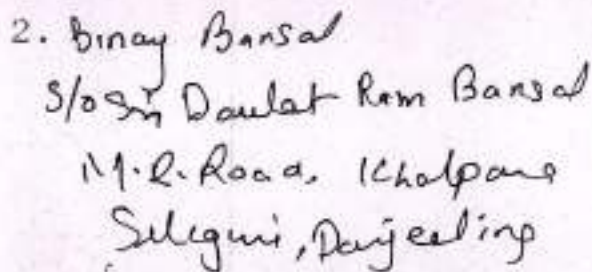 2. Binay Bansal
S/o Sri Daulat Ram Bansal
M.R. Road, Khalpara
Siliguri, Darjeeling